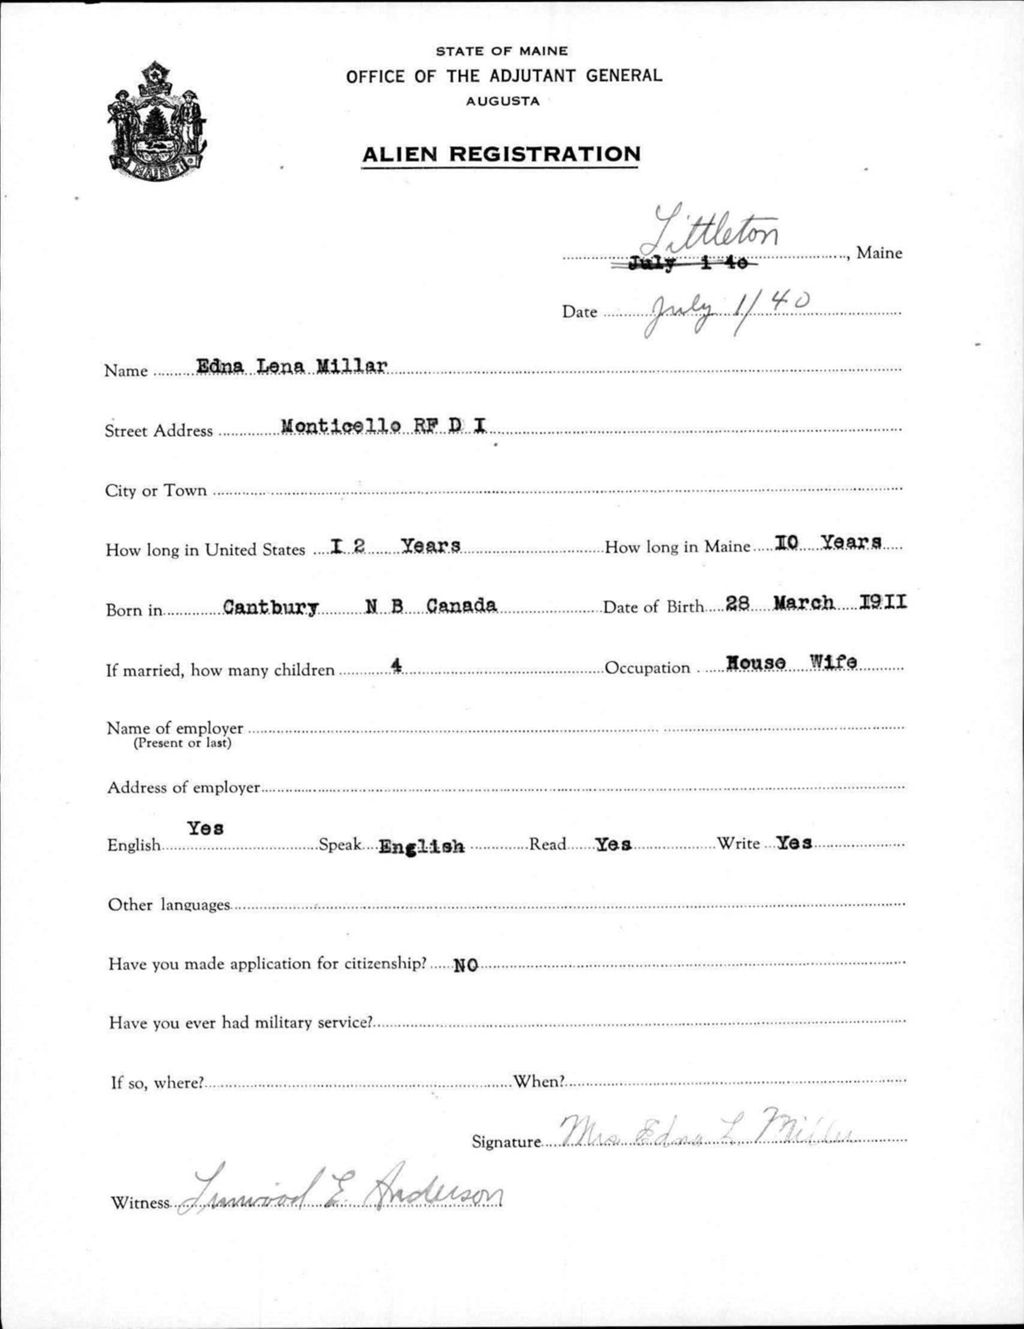 STATE OF MAINE
OFFICE OF THE ADJUTANT GENERAL
AUGUSTA
ALIEN REGISTRATION
MAINE
Littleton
July 1 40, Maine
Date July 1/40
Name Edna Lena Millar
Street Address Monticello RF D I
City or Town
How long in United States I 2 Years How long in Maine IO Years
Born in Cantbury N B Canada Date of Birth 28 March I9II
If married, how many children 4 Occupation House Wife
Name of employer
(Present or last)
Address of employer
English Yes Speak English Read Yes Write Yes
Other languages
Have you made application for citizenship? NO
Have you ever had military service?
If so, where? When?
Signature Mrs Edna L Miller
Witness Linwood E. Anderson